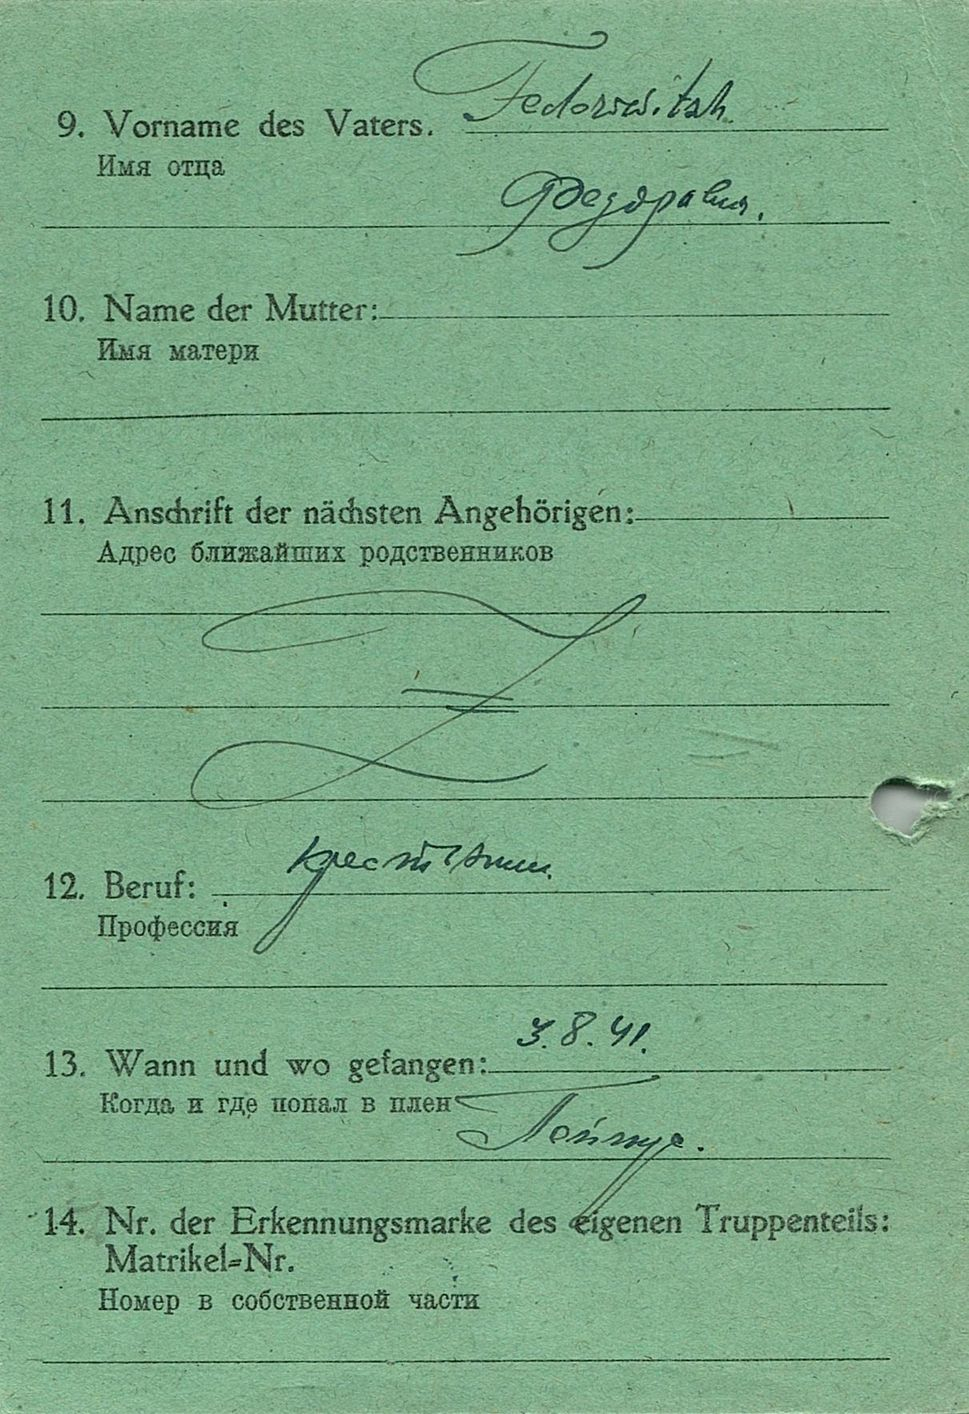 9. Vorname des Vaters. Fedorowitsh
Имя отца
Федоравич.
10. Name der Mutter:
Имя матери
11. Anschrift der nächsten Angehörigen:
Адрес ближайших родственников
12. Beruf: крестянин.
Профессия
3.8.41.
13. Wann und wo gefangen:
Когда и где попал в плен
14. Nr. der Erkennungsmarke des eigenen Truppenteils:
Matrikel-Nr.
Номер в собственной части